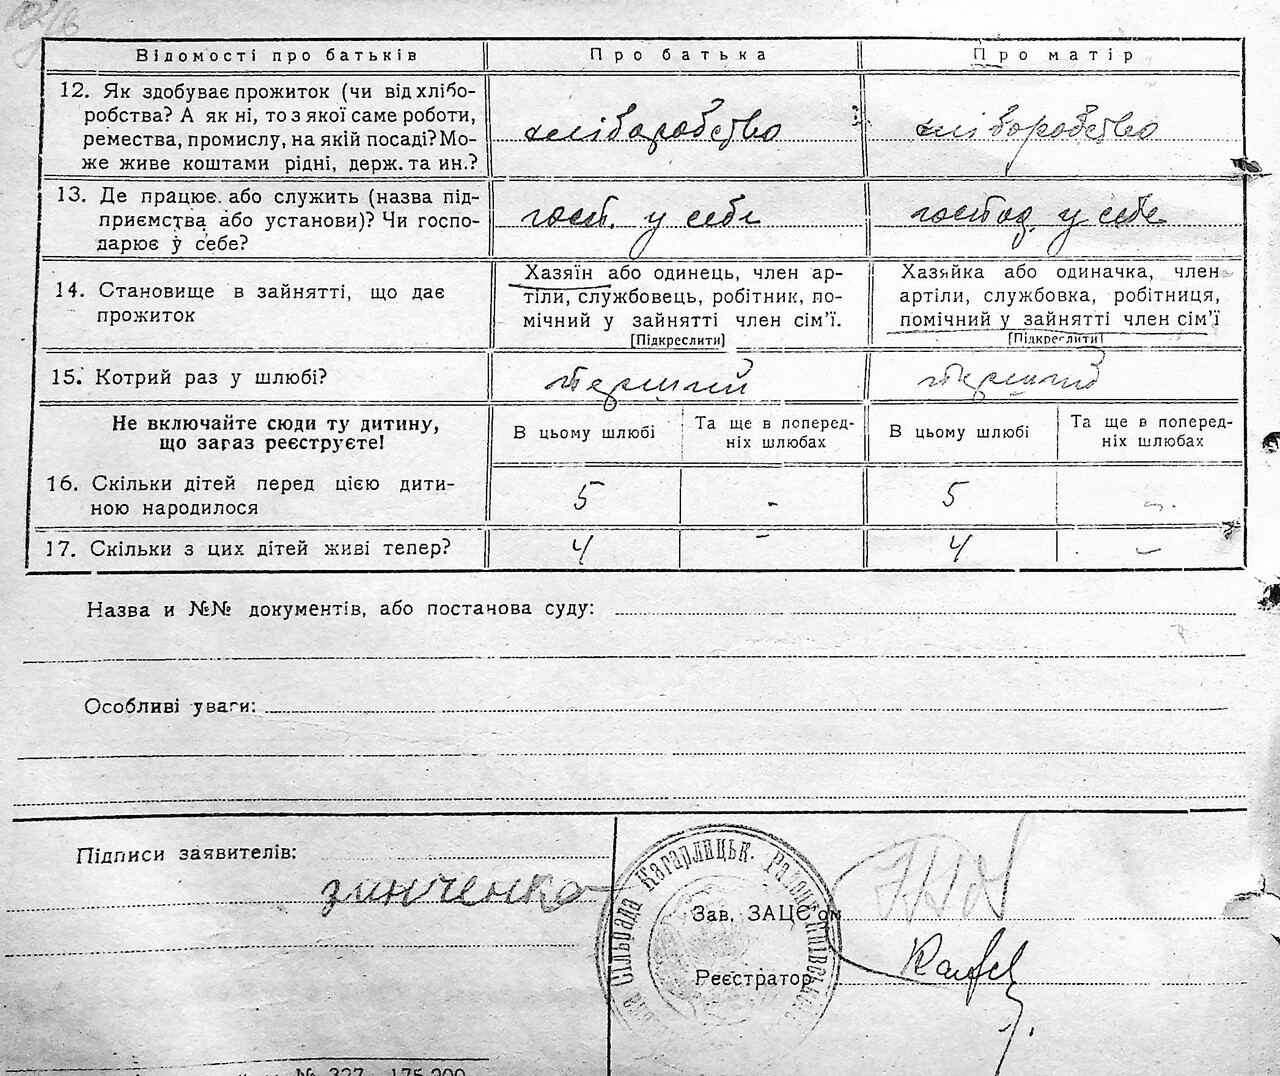 Відомості про батьків Про батька Про матір
12. Як здобуває прожиток (чи від хлібо-
робства? А як ні, то з якої саме роботи,
ремества, промислу, на якій посаді? Мо-
же живе коштами рідні, держ. та ин.?
хліборобство хліборобство
13. Де працює або служить (назва під-
приємства або установи)? Чи госпо-
дарює у себе?
госп. у себе господ. у себе
14. Становище в зайнятті, що дає
прожиток
Хазяїн або одинець, член ар-
тіли, службовець, робітник, по-
мічний у зайнятті член сім'ї.
[Підкреслити]
Хазяйка або одиначка, член
артіли, службовка, робітниця,
помічний у зайнятті член сім'ї
[Підкреслити]
15. Котрий раз у шлюбі? перший перший
Не включайте сюди ту дитину,
що зараз реєструєте!
В цьому шлюбі
Та ще в поперед-
ніх шлюбах
В цьому шлюбі
Та ще в поперед-
ніх шлюбах
16. Скільки дітей перед цією дити-
ною народилося
5 - 5 -
17. Скільки з цих дітей живі тепер? 4 - 4 -
Назва и №№ документів, або постанова суду:
Особливі уваги:
Підписи заявителів:
зинченко
Сільрада Кагарлицьк. Район
Зав. ЗАЦС'ом
Реєстратор
№ 327 175.200